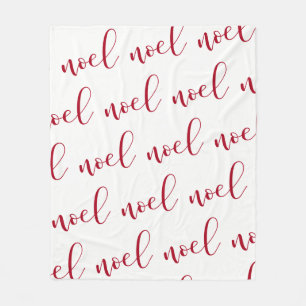 noel noel noel
noel noel noel
noel noel noel
noel noel noel
noel noel noel no